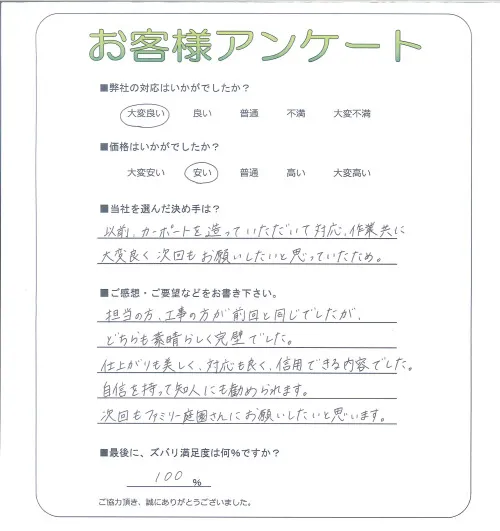 お客様アンケート
■弊社の対応はいかがでしたか？
大変良い 良い 普通 不満 大変不満
■価格はいかがでしたか？
大変安い 安い 普通 高い 大変高い
■当社を選んだ決め手は？
以前、カーポートを造っていただいて対応、作業共に
大変良く次回もお願いしたいと思っていたため。
■ご感想・ご要望などをお書き下さい。
担当の方、工事の方が前回と同じでしたが、
どちらも素晴らしく完璧でした。
仕上がりも美しく、対応も良く、信用できる内容でした。
自信を持って知人にも勧められます。
次回もファミリー庭園さんにお願いしたいと思います。
■最後に、ズバリ満足度は何%ですか？
100 %
ご協力頂き、誠にありがとうございました。